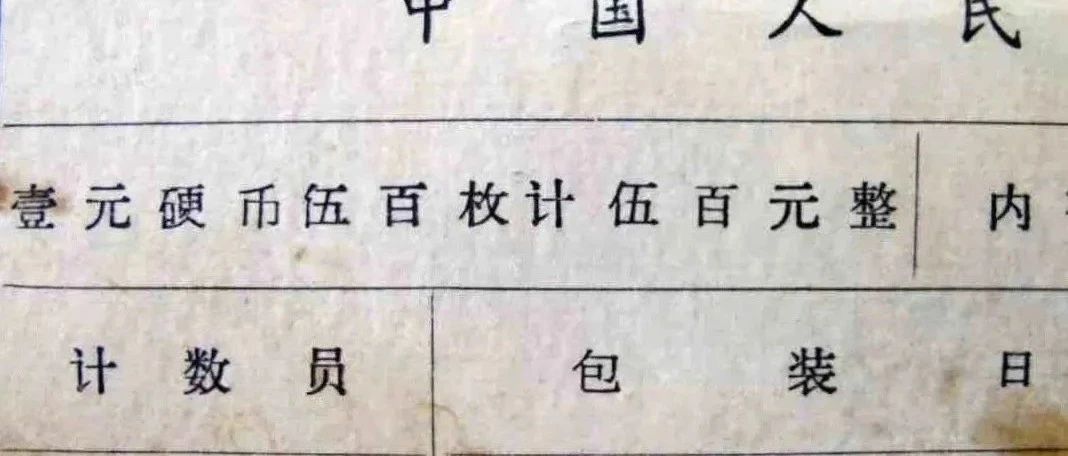 中国人民
壹元硬币伍百枚计伍百元整 内
计数员 包装日